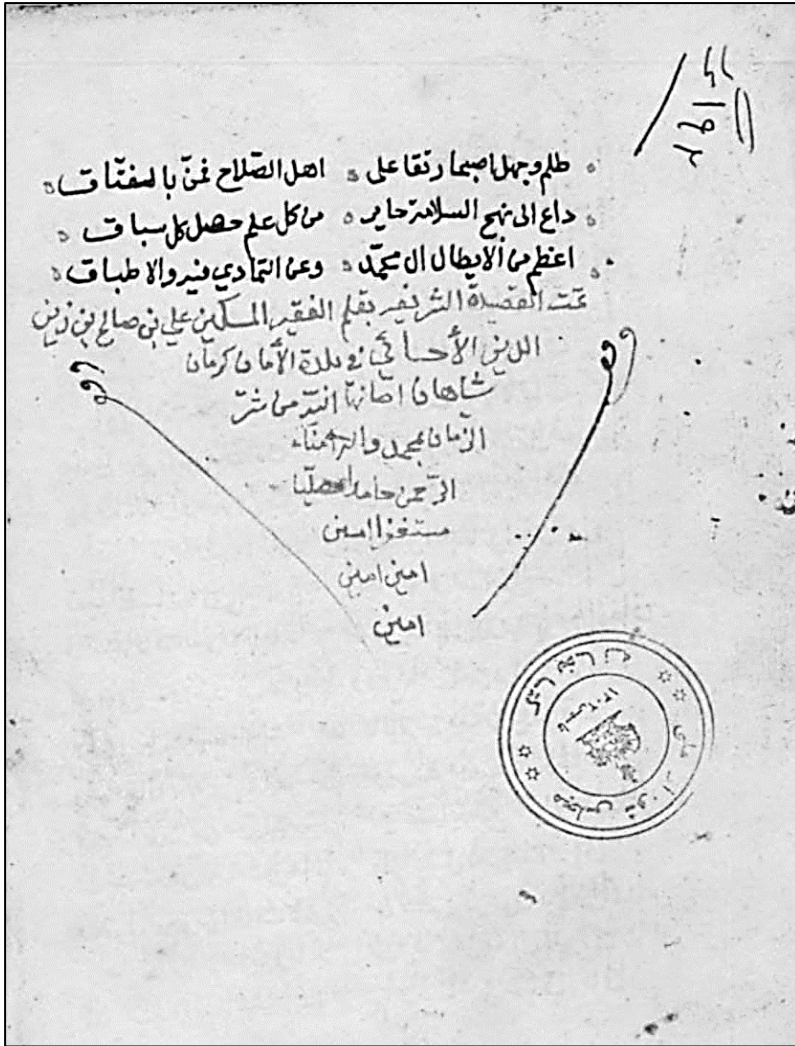 ظلم وجهل اصبحا رتقا على ۰ اهل الصلاح فمن بالمفتاق
داع الى نهج السلامة حاير ۰ من كل علم حصل كل سباق
اعظم من الابطال ال محمد ۰ وعن التمادي فيه والاطباق
تمت القصيدة الشريفه بقلم الفقير المسكين علي بن صالح بن زين
الدين الأحسائي في بلدة الأمان كرمان
شاهان
من شر
الزمان بمحمد واله امناء
الرحمن حامدا مصليا
مستغفرا امين
امين امين
امين
مجلس شورای ملی